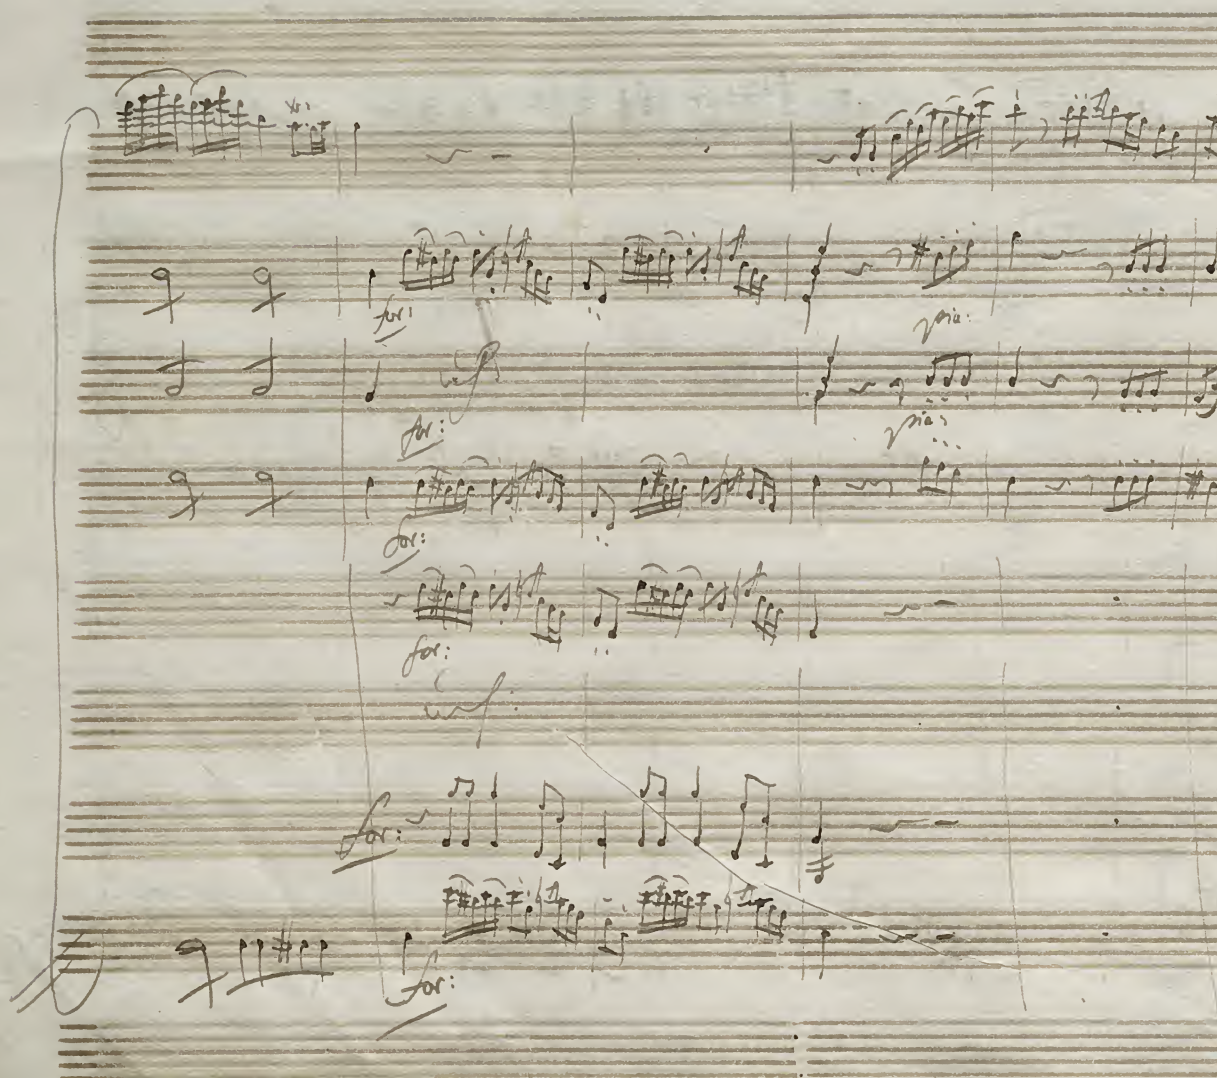 tr:
for:
pia:
for:
pia:
for:
for:
for:
for: